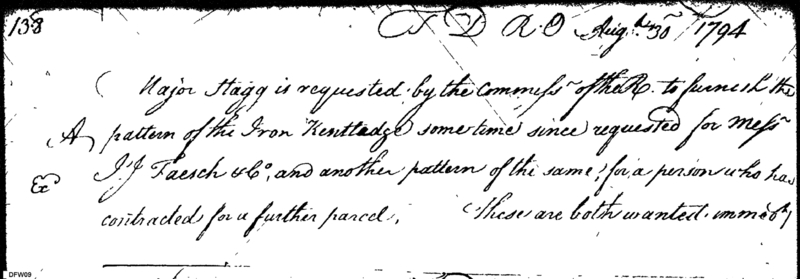 138 T D R.O Aug.st 30 1794
Major Stagg is requested by the Commiss.r of the R. to furnish the
A pattern of the Iron Kentladge some time since requested for Mess.rs
Ex.d J.J Faesch & Co. and another pattern of the same, for a person who has
contracted for a further parcel. These are both wanted immed.ly
DFW09